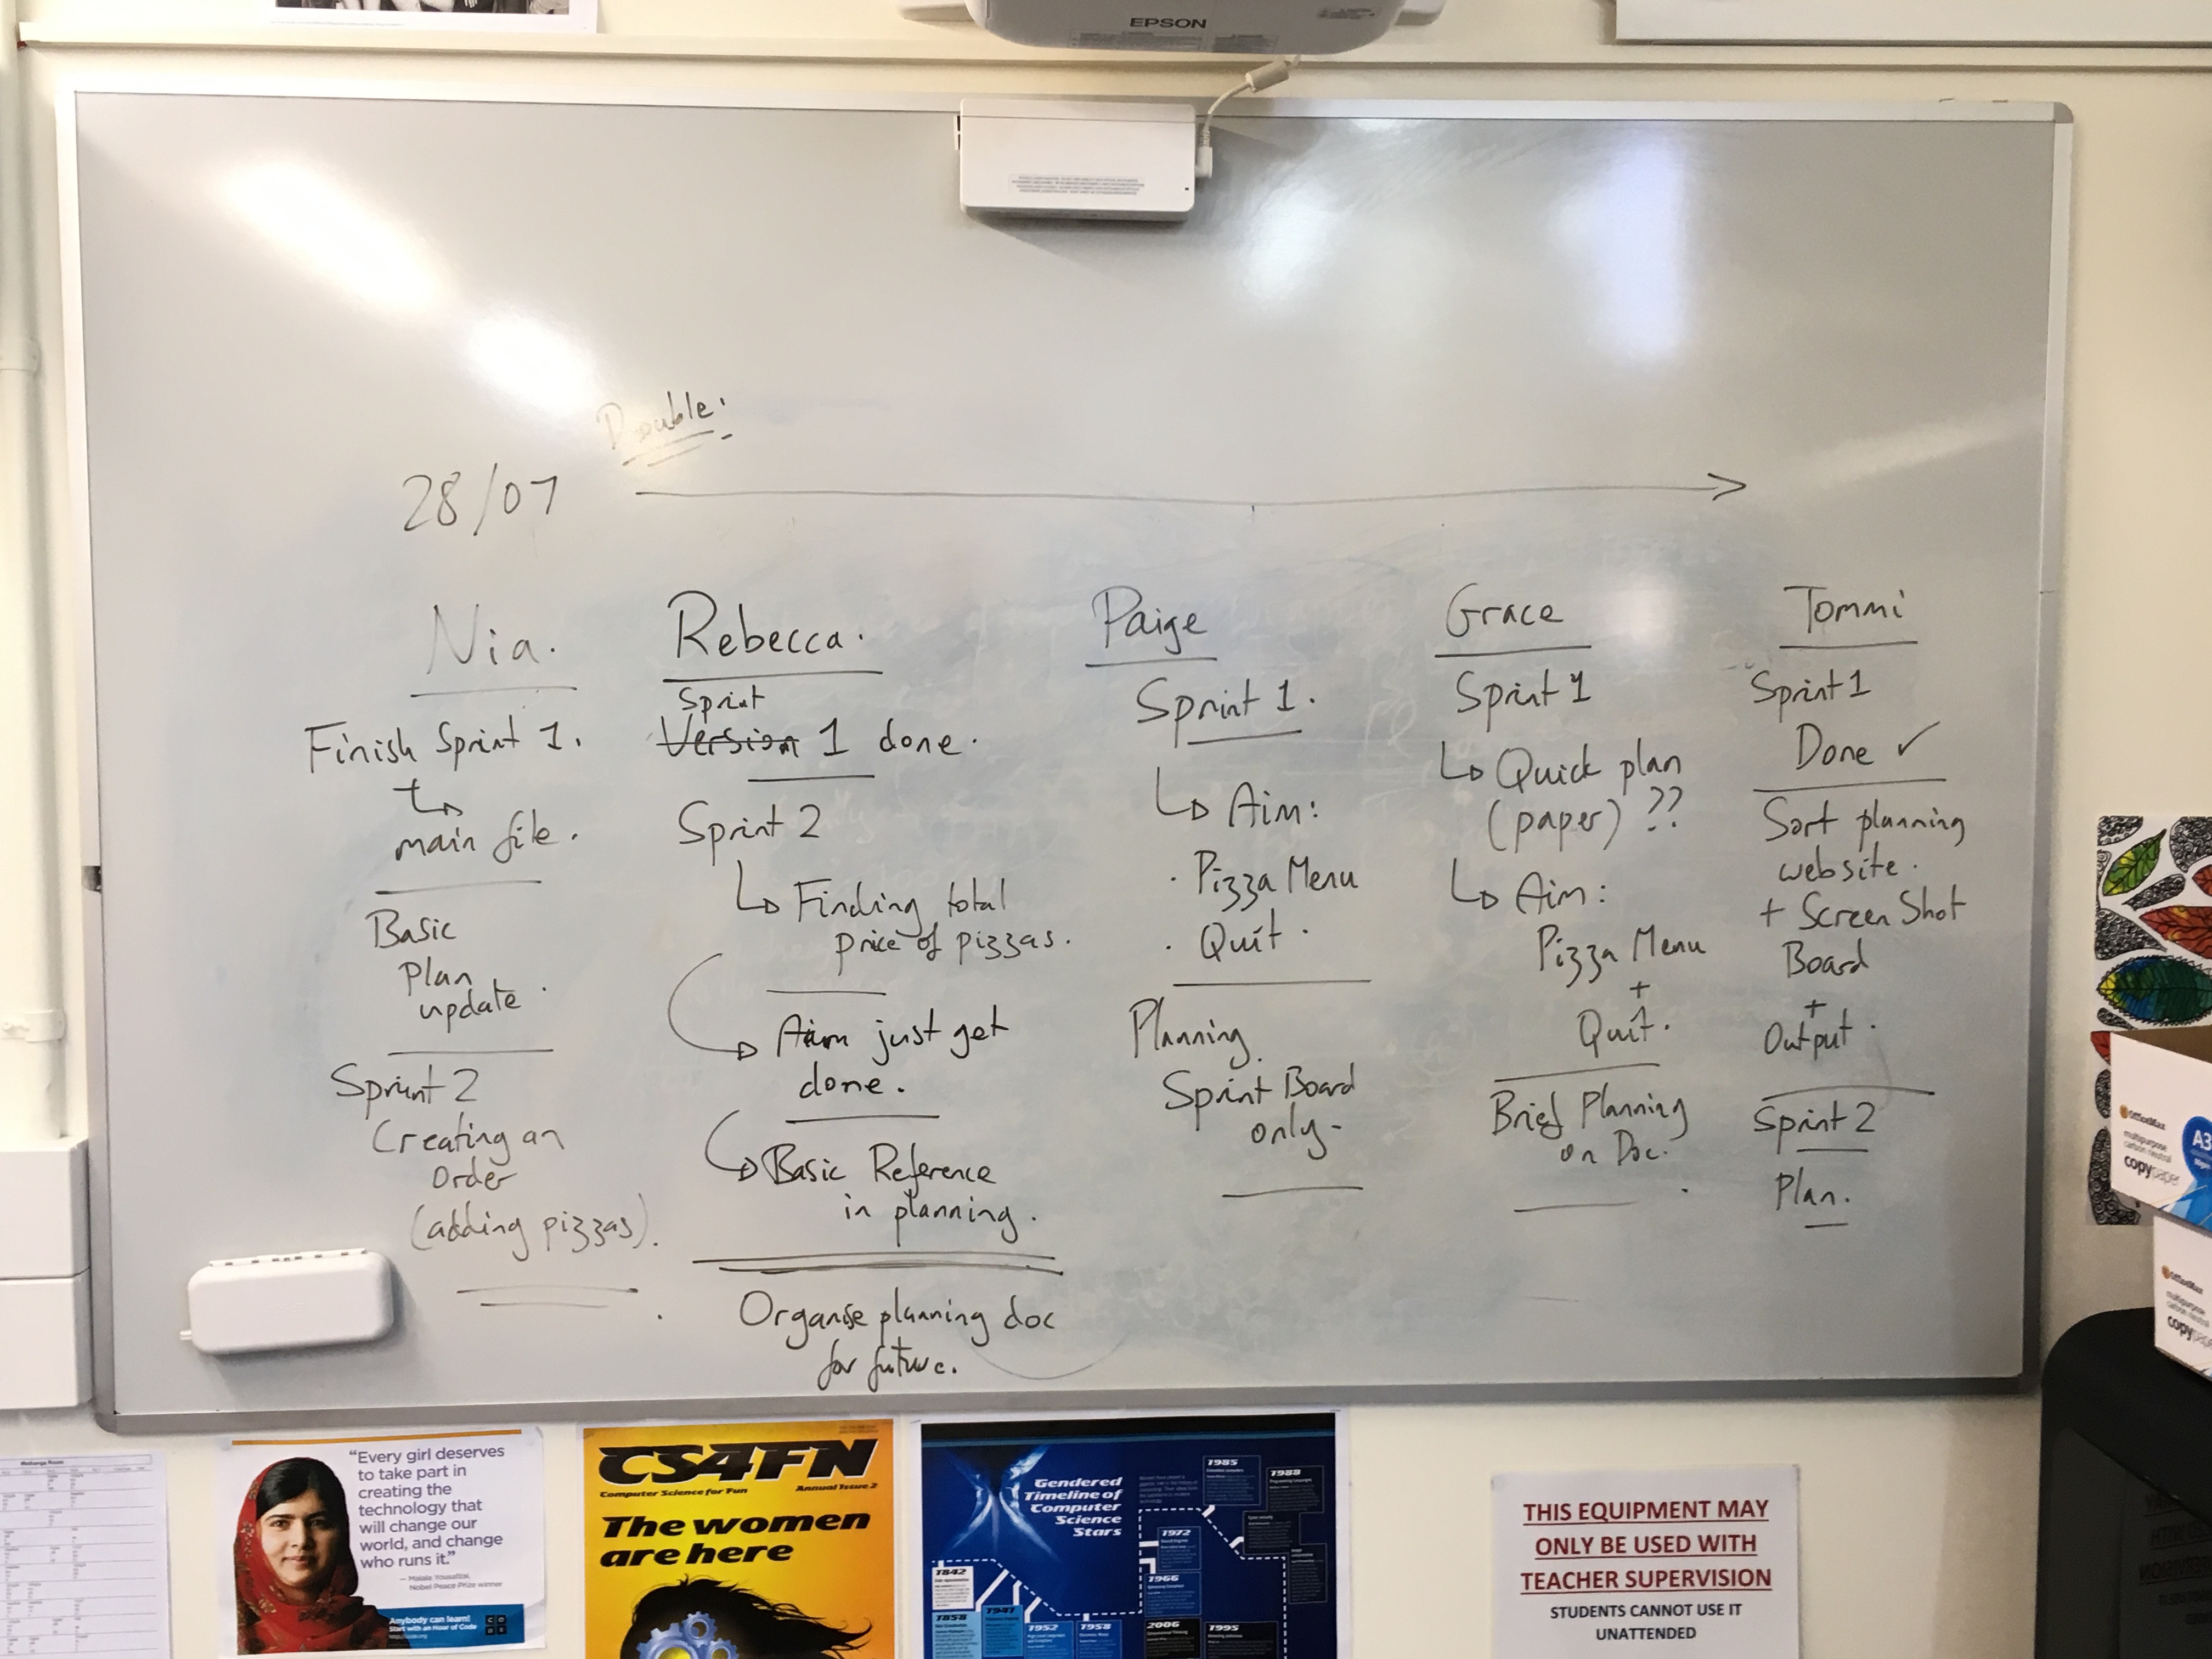 EPSON
Double:
28/07
Nia.
Finish Sprint 1.
main file.
Basic
Plan
update.
Sprint 2
Creating an
Order
(adding pizzas).
Rebecca.
Sprint
Version 1 done.
Sprint 2
Finding total
price of pizzas.
Aim just get
done.
Basic Reference
in planning.
Organise planning doc
for future.
Paige
Sprint 1.
Aim:
· Pizza Menu
· Quit.
Planning
Sprint Board
only-
Grace
Sprint 1
Quick plan
(paper) ??
Aim:
Pizza Menu
+
Quit.
Brief Planning
on Doc.
Tommi
Sprint 1
Done ✓
Sort planning
website.
+ Screen Shot
Board
+
Output.
Sprint 2
Plan.
OfficeMax
multipurpose
carbon neutral
copy paper
A3
OfficeMax
copy
"Every girl deserves
to take part in
creating the
technology that
will change our
world, and change
who runs it."
— Malala Yousafzai,
Nobel Peace Prize winner
Anybody can learn!
Start with an Hour of Code
CODE
CS4FN
Computer Science for Fun
Annual Issue 2
The women
are here
Gendered
Timeline of
Computer
Science
Stars
1985
1988
1972
1966
1842
1858
1947
1952
1958
2006
1995
THIS EQUIPMENT MAY
ONLY BE USED WITH
TEACHER SUPERVISION
STUDENTS CANNOT USE IT
UNATTENDED